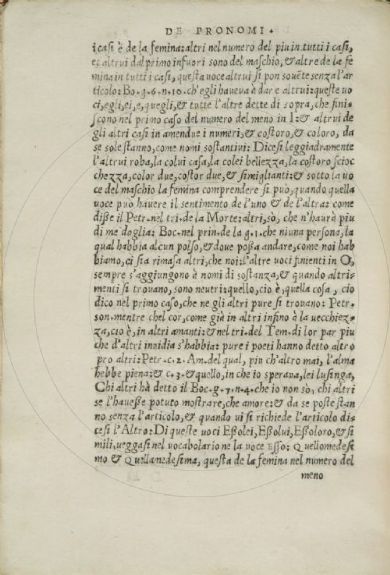 DE PRONOMI.
i casi è de la femina: altri nel numero del piu in tutti i casi,
et altrui dal primo infuori sono del maschio, & altre de la fe
mina in tutti i casi, questa voce altrui si pon souẽte senza l'ar
ticolo: Bo. g. 6. n. 10. ch'egli haueva à dare altrui: queste uo
ci, egli, ei, e, quegli, & tutte l'altre dette di sopra, che fini-
scono nel primo caso del numero del meno in I: & altrui de
gli altri casi in amendue i numeri, & costoro, & coloro, da
se sole stanno, come nomi sostantini: Dicesi leggiadramente
l'altrui roba, la colui casa, la colei bellezza, la costoro scioc
chezza, color due, costor due, & simiglianti: & sotto la uo
ce del maschio la femina comprendere si può, quando quella
voce può hauere il sentimento de l'uno & de l'altra: come
disse il Petr. nel tri. de la Morte: altri, so, che n'haurà piu
di me doglia: Boc. nel prin. de la g. 1. che niuna persona, la
qual habbia alcun polso, & doue possa andare, come noi hab
biamo, ci sia rimasa altri, che noi: l'altre uoci finienti in O,
sempre s'aggiungono è nomi di sostanza, & quando altri-
menti si trouano, sono neutri: quello, cio è, quella cosa, cio
dico nel primo caso, che ne gli altri pure si trouano: Petr.
son. mentre chel cor, come già in altri infino à la uecchiez-
za, cio è, in altri amanti: & nel tri. del Tem. di lor par piu
che d'altri inuidia s'habbia: pure i poeti hanno detto altro
pro altri: Petr. c. 2. Am. del qual, piu ch'altro mai, l'alma
hebbe piena: & c. 3. & quello, in che io sperava, lei lusinga,
Chi altri hà detto il Boc. g. 7. n. 4. che io non so, chi altri
se l'hauesse potuto mostrare, che amore: & da se poste stan
no senza l'articolo, & quando ui si richiede l'articolo di-
cesi l'Altro: Di queste uoci Essolei, Essolui, Essoloro, & si
mili, ueggasi nel uocabolario ne la uoce Esso: Quellomedesi
mo & Quellamedesima, questa de la femina nel numero del
meno